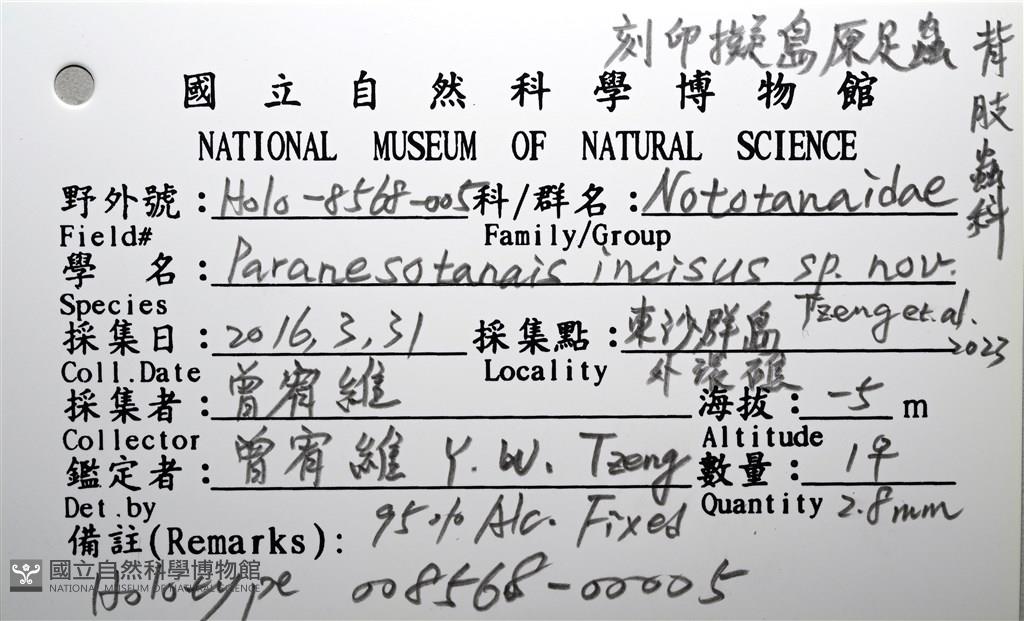 刻印擬島原足蟲
背肢蟲科
國立自然科學博物館
NATIONAL MUSEUM OF NATURAL SCIENCE
野外號：Holo-8568-005 科/群名：Nototanaidae
Field# Family/Group
學 名：Paranesotanais incisus sp. nov.
Species Tzeng et. al. 2023
採集日：2016, 3, 31 採集點：東沙群島
Coll.Date Locality 外環礁
採集者：曾宥維 海拔：-5 m
Collector Altitude
鑑定者：曾宥維 Y. W. Tzeng 數量：1♀
Det.by Quantity 2.8mm
備註(Remarks): 95% Alc. Fixed
Holotype 008568-00005
國立自然科學博物館
NATIONAL MUSEUM OF NATURAL SCIENCE